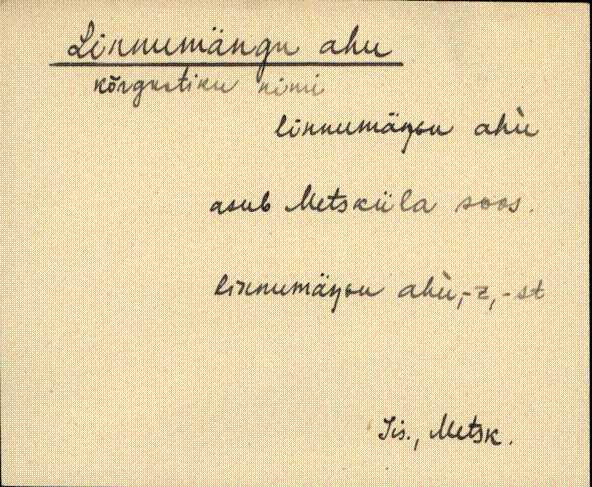 Linnumängu ahu
kõrgustiku nimi
linnumäŋɢu ahù
asub Metsküla soos.
linnumäŋɢu ahù,-z,-st
Jis., Metsk.